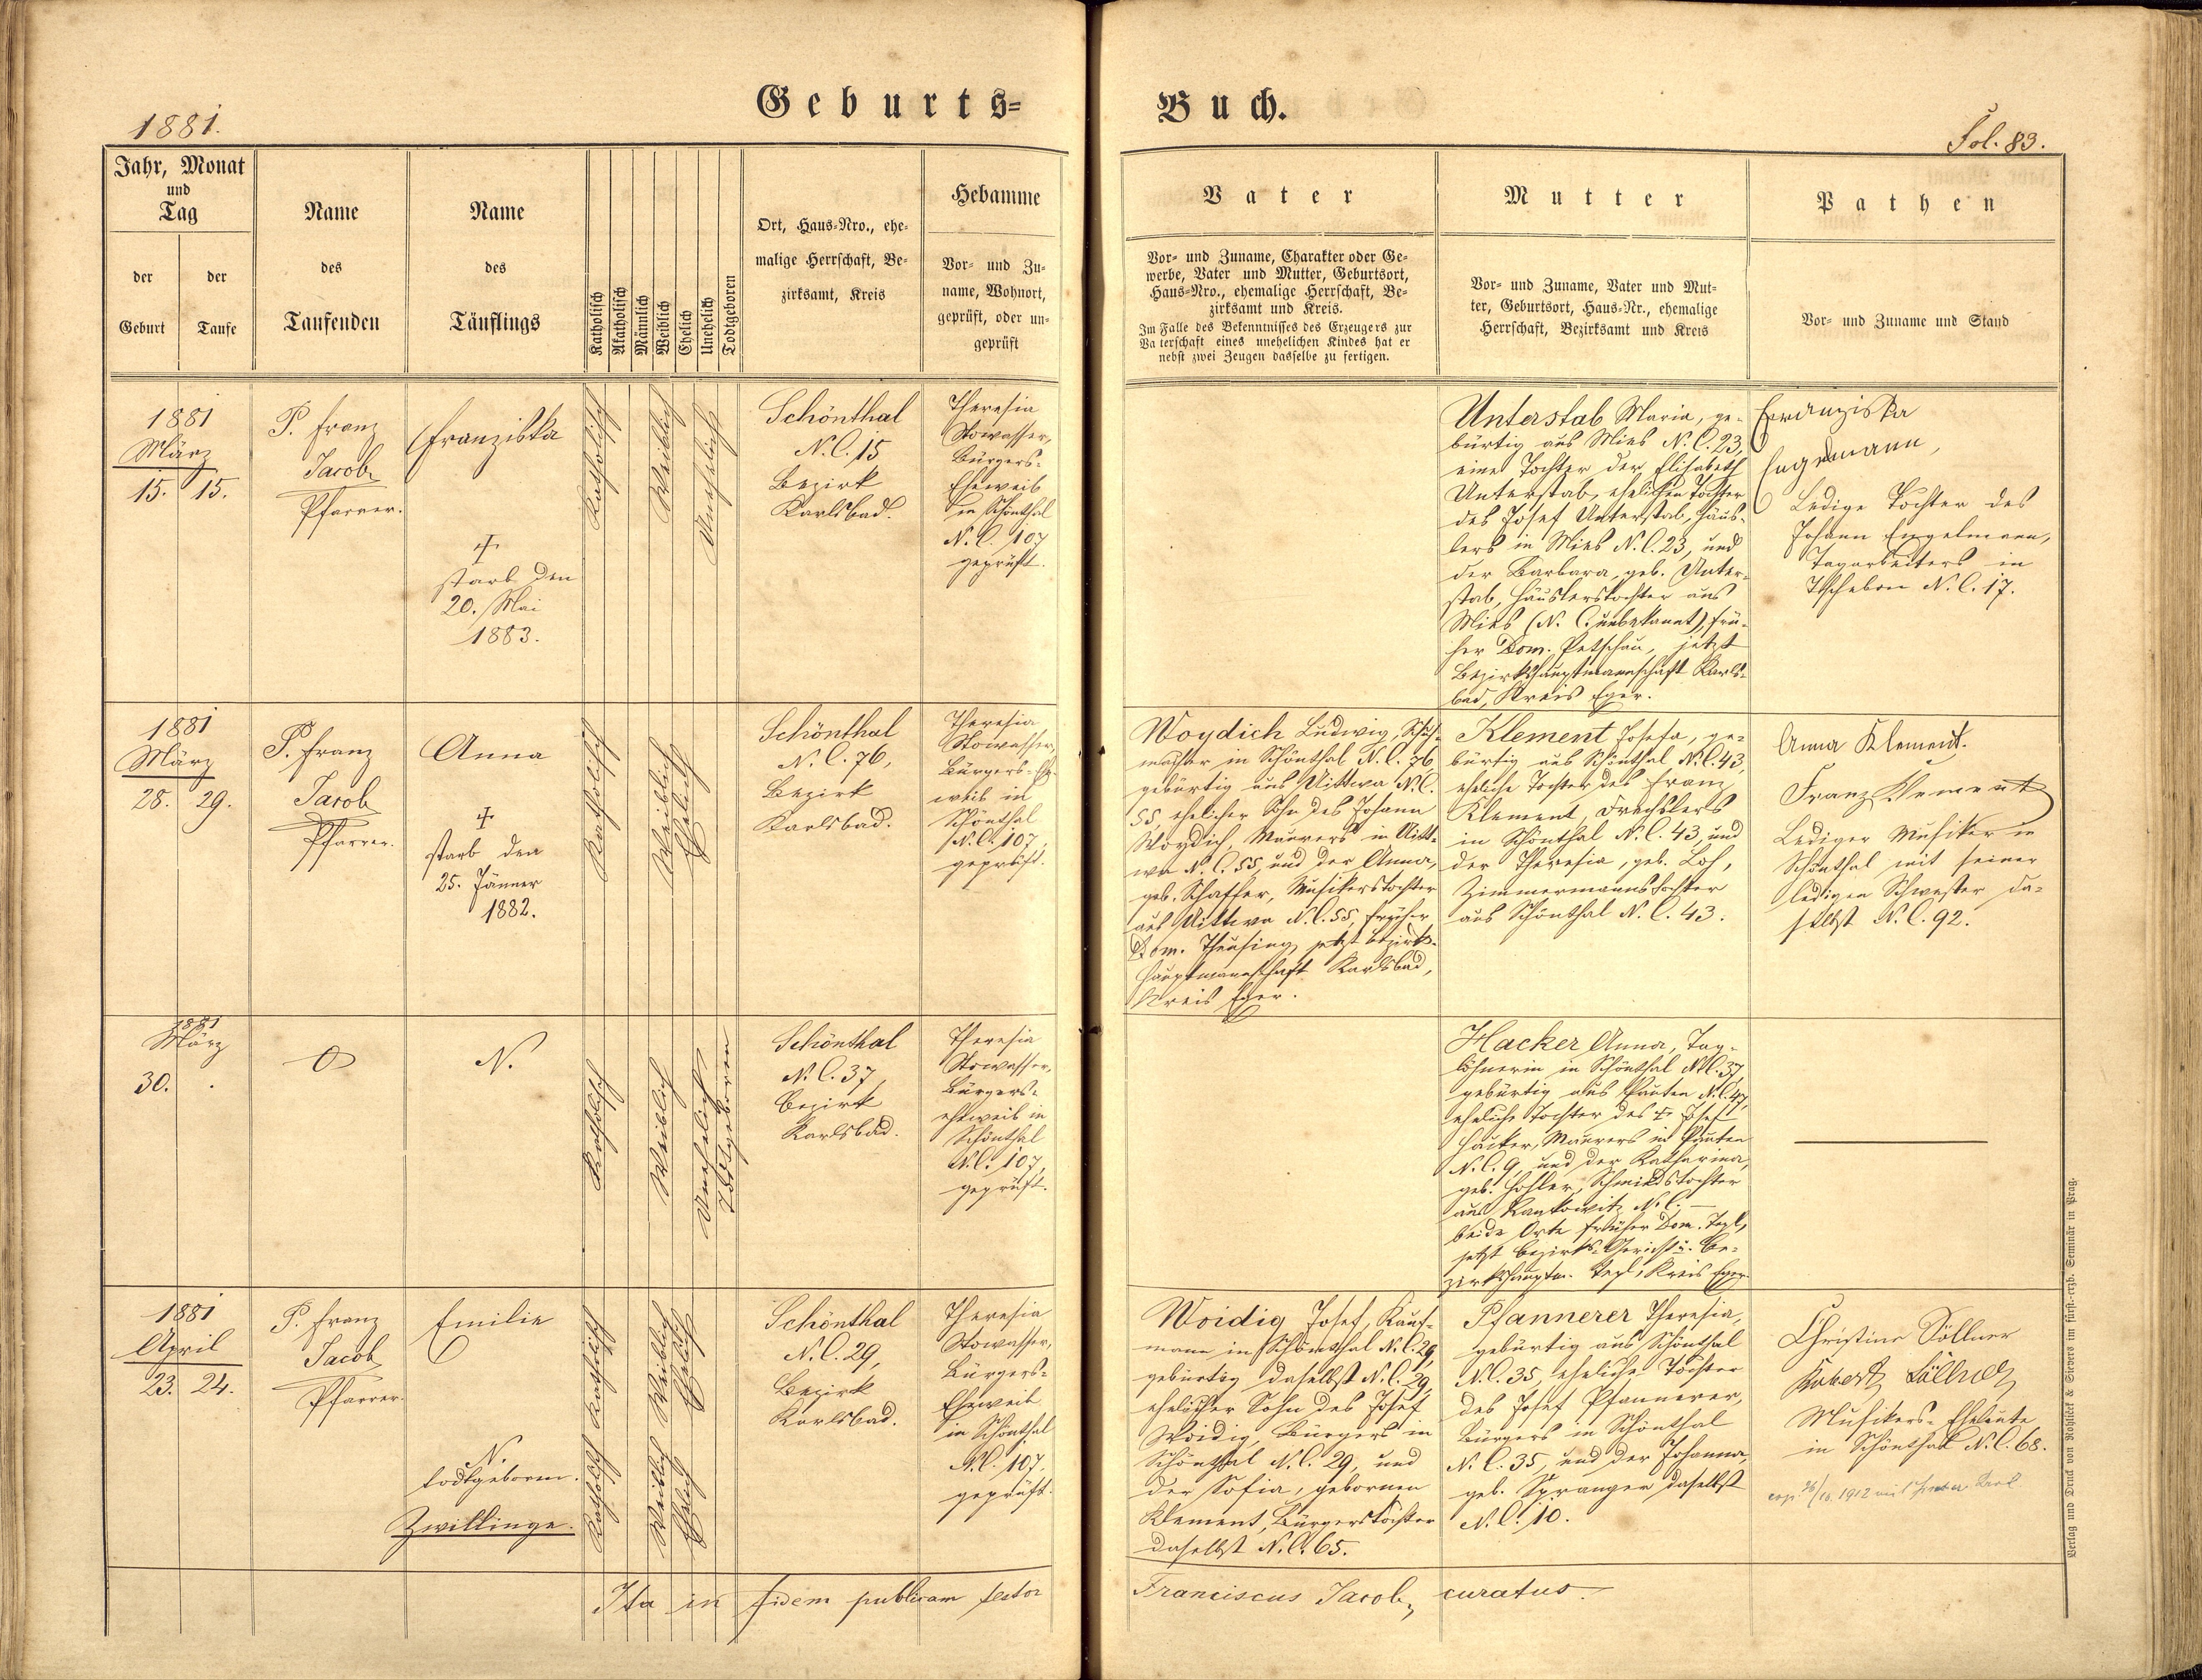 1881.
Geburts=
Buch.
Fol. 83.
Jahr, Monat
und
Tag
der
Geburt
der
Taufe
Name
des
Taufenden
Name
des
Täuflings
Katholisch
Akatholisch
Männlich
Weiblich
Ehelich
Unehelich
Todtgeboren
Ort, Haus=Nro., ehe=
malige Herrschaft, Be=
zirksamt, Kreis
Hebamme
Vor= und Zu=
name, Wohnort,
geprüft, oder un=
geprüft
Vater
Vor= und Zuname, Charakter oder Ge=
werbe, Vater und Mutter, Geburtsort,
Haus=Nro., ehemalige Herrschaft, Be=
zirksamt und Kreis.
Im Falle des Bekenntnisses des Erzeugers zur
Va terschaft eines unehelichen Kindes hat er
nebst zwei Zeugen dasselbe zu fertigen.
Mutter
Vor= und Zuname, Vater und Mut=
ter, Geburtsort, Haus=Nr., ehemalige
Herrschaft, Bezirksamt und Kreis
Pathen
Vor= und Zuname und Stand
1881
März
15. 15.
P. Franz
Jacob
Pfarrer.
Franziska
†
starb den
20. Mai
1883.
Katholisch
Weiblich
Unehelich
Schönthal
N.C. 15
Bezirk
Karlsbad.
Theresia
Stowasser,
Bürgers=
Eheweib
in Schönthal
N.C. 107
geprüft.
Unterstab Maria, ge=
bürtig aus Mies N.C. 23,
eine Tochter der Elisabeth
Unterstab, ehelichen Tochter
des Josef Unterstab, Häus=
lers in Mies N.C. 23, und
der Barbara, geb. Unter=
stab, Häuslerstochter aus
Mies (N.C. unbekannt), frü=
her Dom. Petschau, jetzt
Bezirkshauptmannschaft Karls=
bad, Kreis Eger.
Franziska
Engelmann,
Ledige Tochter des
Johann Engelmann,
Tagarbeiters in
Tschebon N.C. 17.
1881
März
28. 29.
P. Franz
Jacob
Pfarrer.
Anna
†
starb den
25. Jänner
1882.
Katholisch
Weiblich
Ehelich
Schönthal
N.C. 76,
Bezirk
Karlsbad.
Theresia
Stowasser,
Bürgers=Ehe=
weib in
Schönthal
N.C. 107,
geprüft.
Woydich Ludwig, Schuh=
macher in Schönthal N.C. 76,
gebürtig aus Uittwa N.C.
55, ehelicher Sohn des Johann
Woydich, Maurers in Uitt=
wa N.C. 55, und der Anna,
geb. Schaffer, Musikerstochter
aus Uittwa N.C. 55, früher
Dom. Theusing, jetzt Bezirks=
hauptmannschaft Karlsbad,
Kreis Eger.
Klement Josefa, ge=
bürtig aus Schönthal N.C. 43,
eheliche Tochter des Franz
Klement, Drechslers
in Schönthal N.C. 43, und
der Theresia, geb. Loh,
Zimmermannstochter
aus Schönthal N.C. 43.
Anna Klement.
Franz Klement
Lediger Musiker in
Schönthal mit seiner
ledigen Schwester da=
selbst N.C. 92.
1881
März
30. .
O
N.
Katholisch
Weiblich
Unehelich
Todtgeboren
Schönthal
N.C. 37,
Bezirk
Karlsbad.
Theresia
Stowasser,
Bürgers=
eheweib in
Schönthal
N.C. 107,
geprüft.
Hacker Anna, Tag=
löhnerin in Schönthal N.C. 37,
gebürtig aus Pauten N.C. 47,
eheliche Tochter des † Josef
Hacker, Maurers in Pauten
N.C. 9, und der Katharina,
geb. Hohler, Schmiedstochter
aus Rankowitz N.C. —
beide Orte früher Dom. Tepl,
jetzt Bezirks=Gericht u. Be=
zirkshauptm. Tepl, Kreis Eger.
1881
April
23. 24.
P. Franz
Jacob
Pfarrer.
Emilie
N.
todtgeboren.
Zwillinge.
Katholisch Katholisch
Weiblich Weiblich
Ehelich Ehelich
Schönthal
N.C. 29,
Bezirk
Karlsbad.
Theresia
Stowasser,
Bürgers=
Eheweib
in Schönthal
N.C. 107.
geprüft.
Woidig Josef, Kauf=
mann in Schönthal N.C. 29,
gebürtig daselbst N.C. 29,
ehelicher Sohn des Josef
Woidig, Bürgers in
Schönthal N.C. 29, und
der Sofia, gebornen
Klement, Bürgerstochter
daselbst N.C. 65.
Pfannerer Theresia,
gebürtig aus Schönthal
N.C. 35, eheliche Tochter
des Josef Pfannerer,
Bürgers in Schönthal
N.C. 35, und der Johanna,
geb. Spranger daselbst
N.C. 10.
Christine Söllner
Robert Söllner
Musikers=Eheleute
in Schönthal N.C. 68.
1912
Ita in fidem publicam testor
Franciscus Jacob, curatus.
Verlag und Druck von Rohliček & Sievers im fürst=erzb. Seminär in Prag.